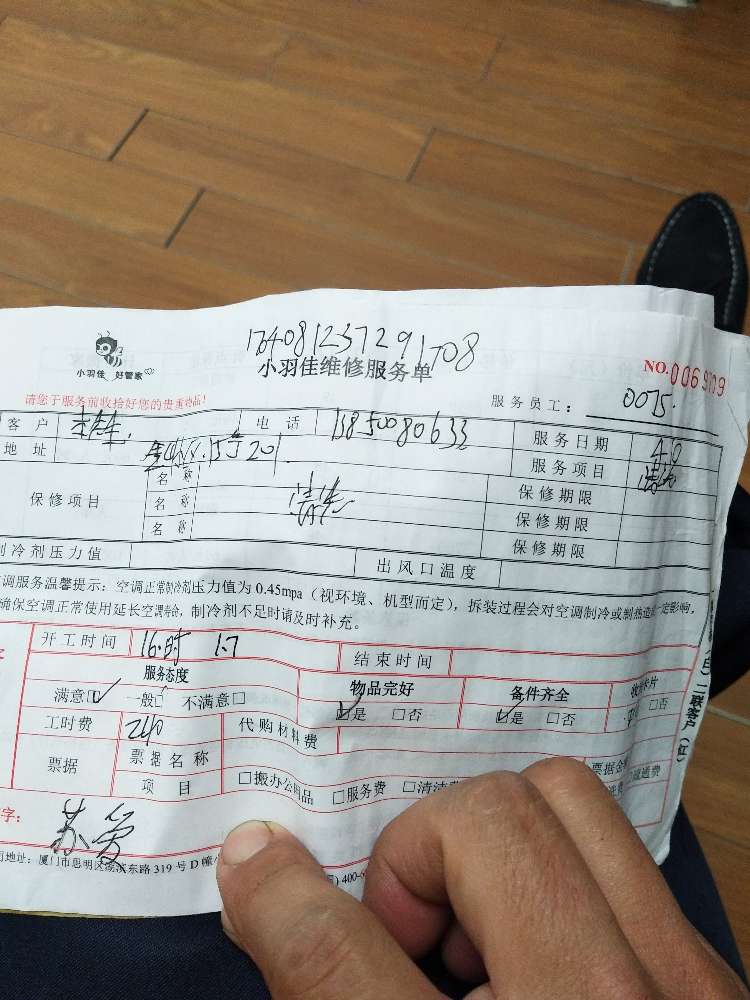 1764081237291708
小羽佳 好管家
小羽佳维修服务单
NO.0069109
请您于服务前收拾好您的贵重物品!
服务员工: 0075.
客户 电话 13850080633 服务日期
地址 201 服务项目 清洗
保修项目 名称 清洗 保修期限
名称 保修期限
名称 保修期限
制冷剂压力值 出风口温度
调服务温馨提示：空调正常制冷剂压力值为 0.45mpa（视环境、机型而定），拆装过程会对空调制冷或制热造成一定影响，
确保空调正常使用延长空调寿命，制冷剂不足时请及时补充。
开工时间 16时 结束时间
服务态度 物品完好 备件齐全 卡片
满意□ 一般□ 不满意□ □是 □否 □是 □否 □否
工时费 240 代购材料费
票据 票据名称 票据金
项目 □搬办公用品 □服务费 □清洁费 通费
字：
地址：厦门市思明区湖滨东路 319 号 D 幢 400-6
二联客户（红）